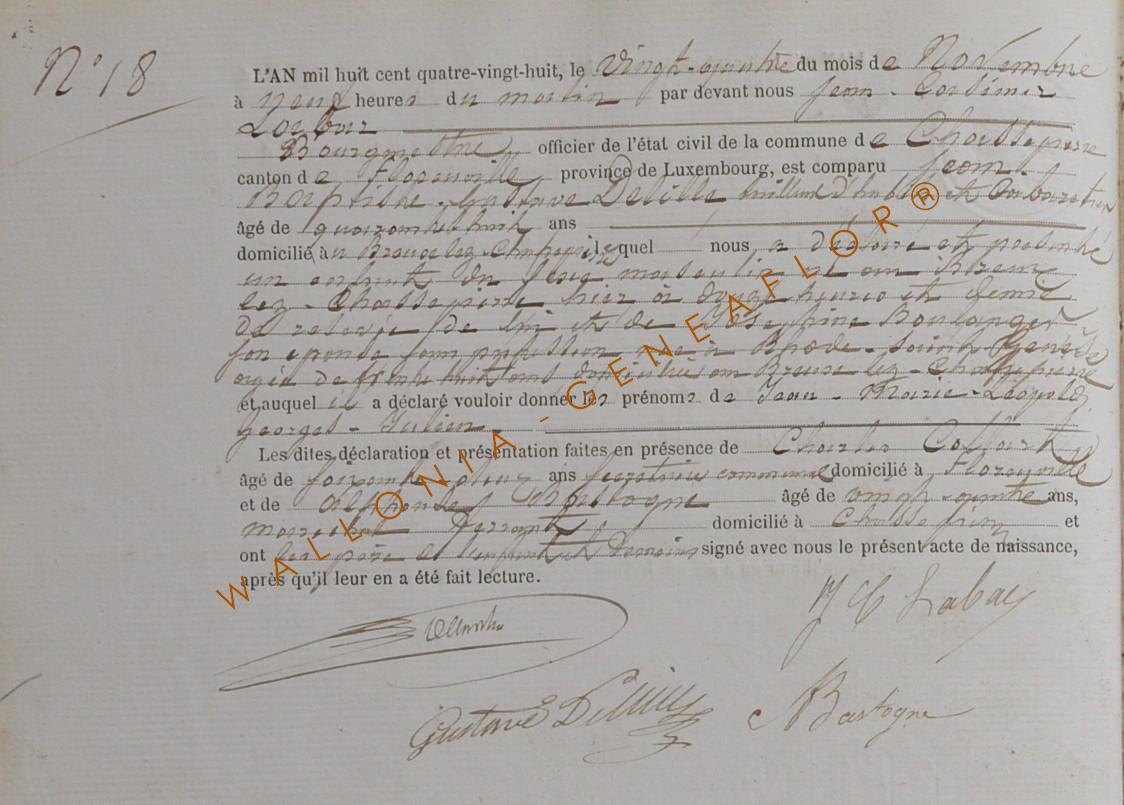 N° 18
L'AN mil huit cent quatre-vingt-huit, le vingt-quatre du mois de Novembre
à neuf heures du matin par devant nous Jean - Casimir
Labar
Bourgmestre officier de l'état civil de la commune de Chassepierre
canton de Florenville province de Luxembourg, est comparu Jean
Baptiste - Gustave Delille et Cabaretier
âgé de quarante huit ans
domicilié à Breuse lez Chassepierre lequel nous a déclaré et présenté
un enfant du sexe masculin né au Breux
lez - Chassepierre hier à douze heures et demie
de relevée de lui et de Joséphine Boulanger
son épouse sans profession née à
âgée de trente huit ans domiciliée au Breuse lez - Chassepierre
et auquel il a déclaré vouloir donner les prénoms de Jean - Marie - Léopold
Georges - Julien
Les dites déclaration et présentation faites en présence de Charles
âgé de soixante ans secrétaire communal domicilié à Florenville
et de Alphonse Bastogne âgé de vingt-quatre ans,
maréchal ferrant domicilié à Chassepierre et
ont les père et témoins signé avec nous le présent acte de naissance,
après qu'il leur en a été fait lecture.
J C Labar
Gustave Delille
Bastogne
WALLONIA-GENEAFLOR®